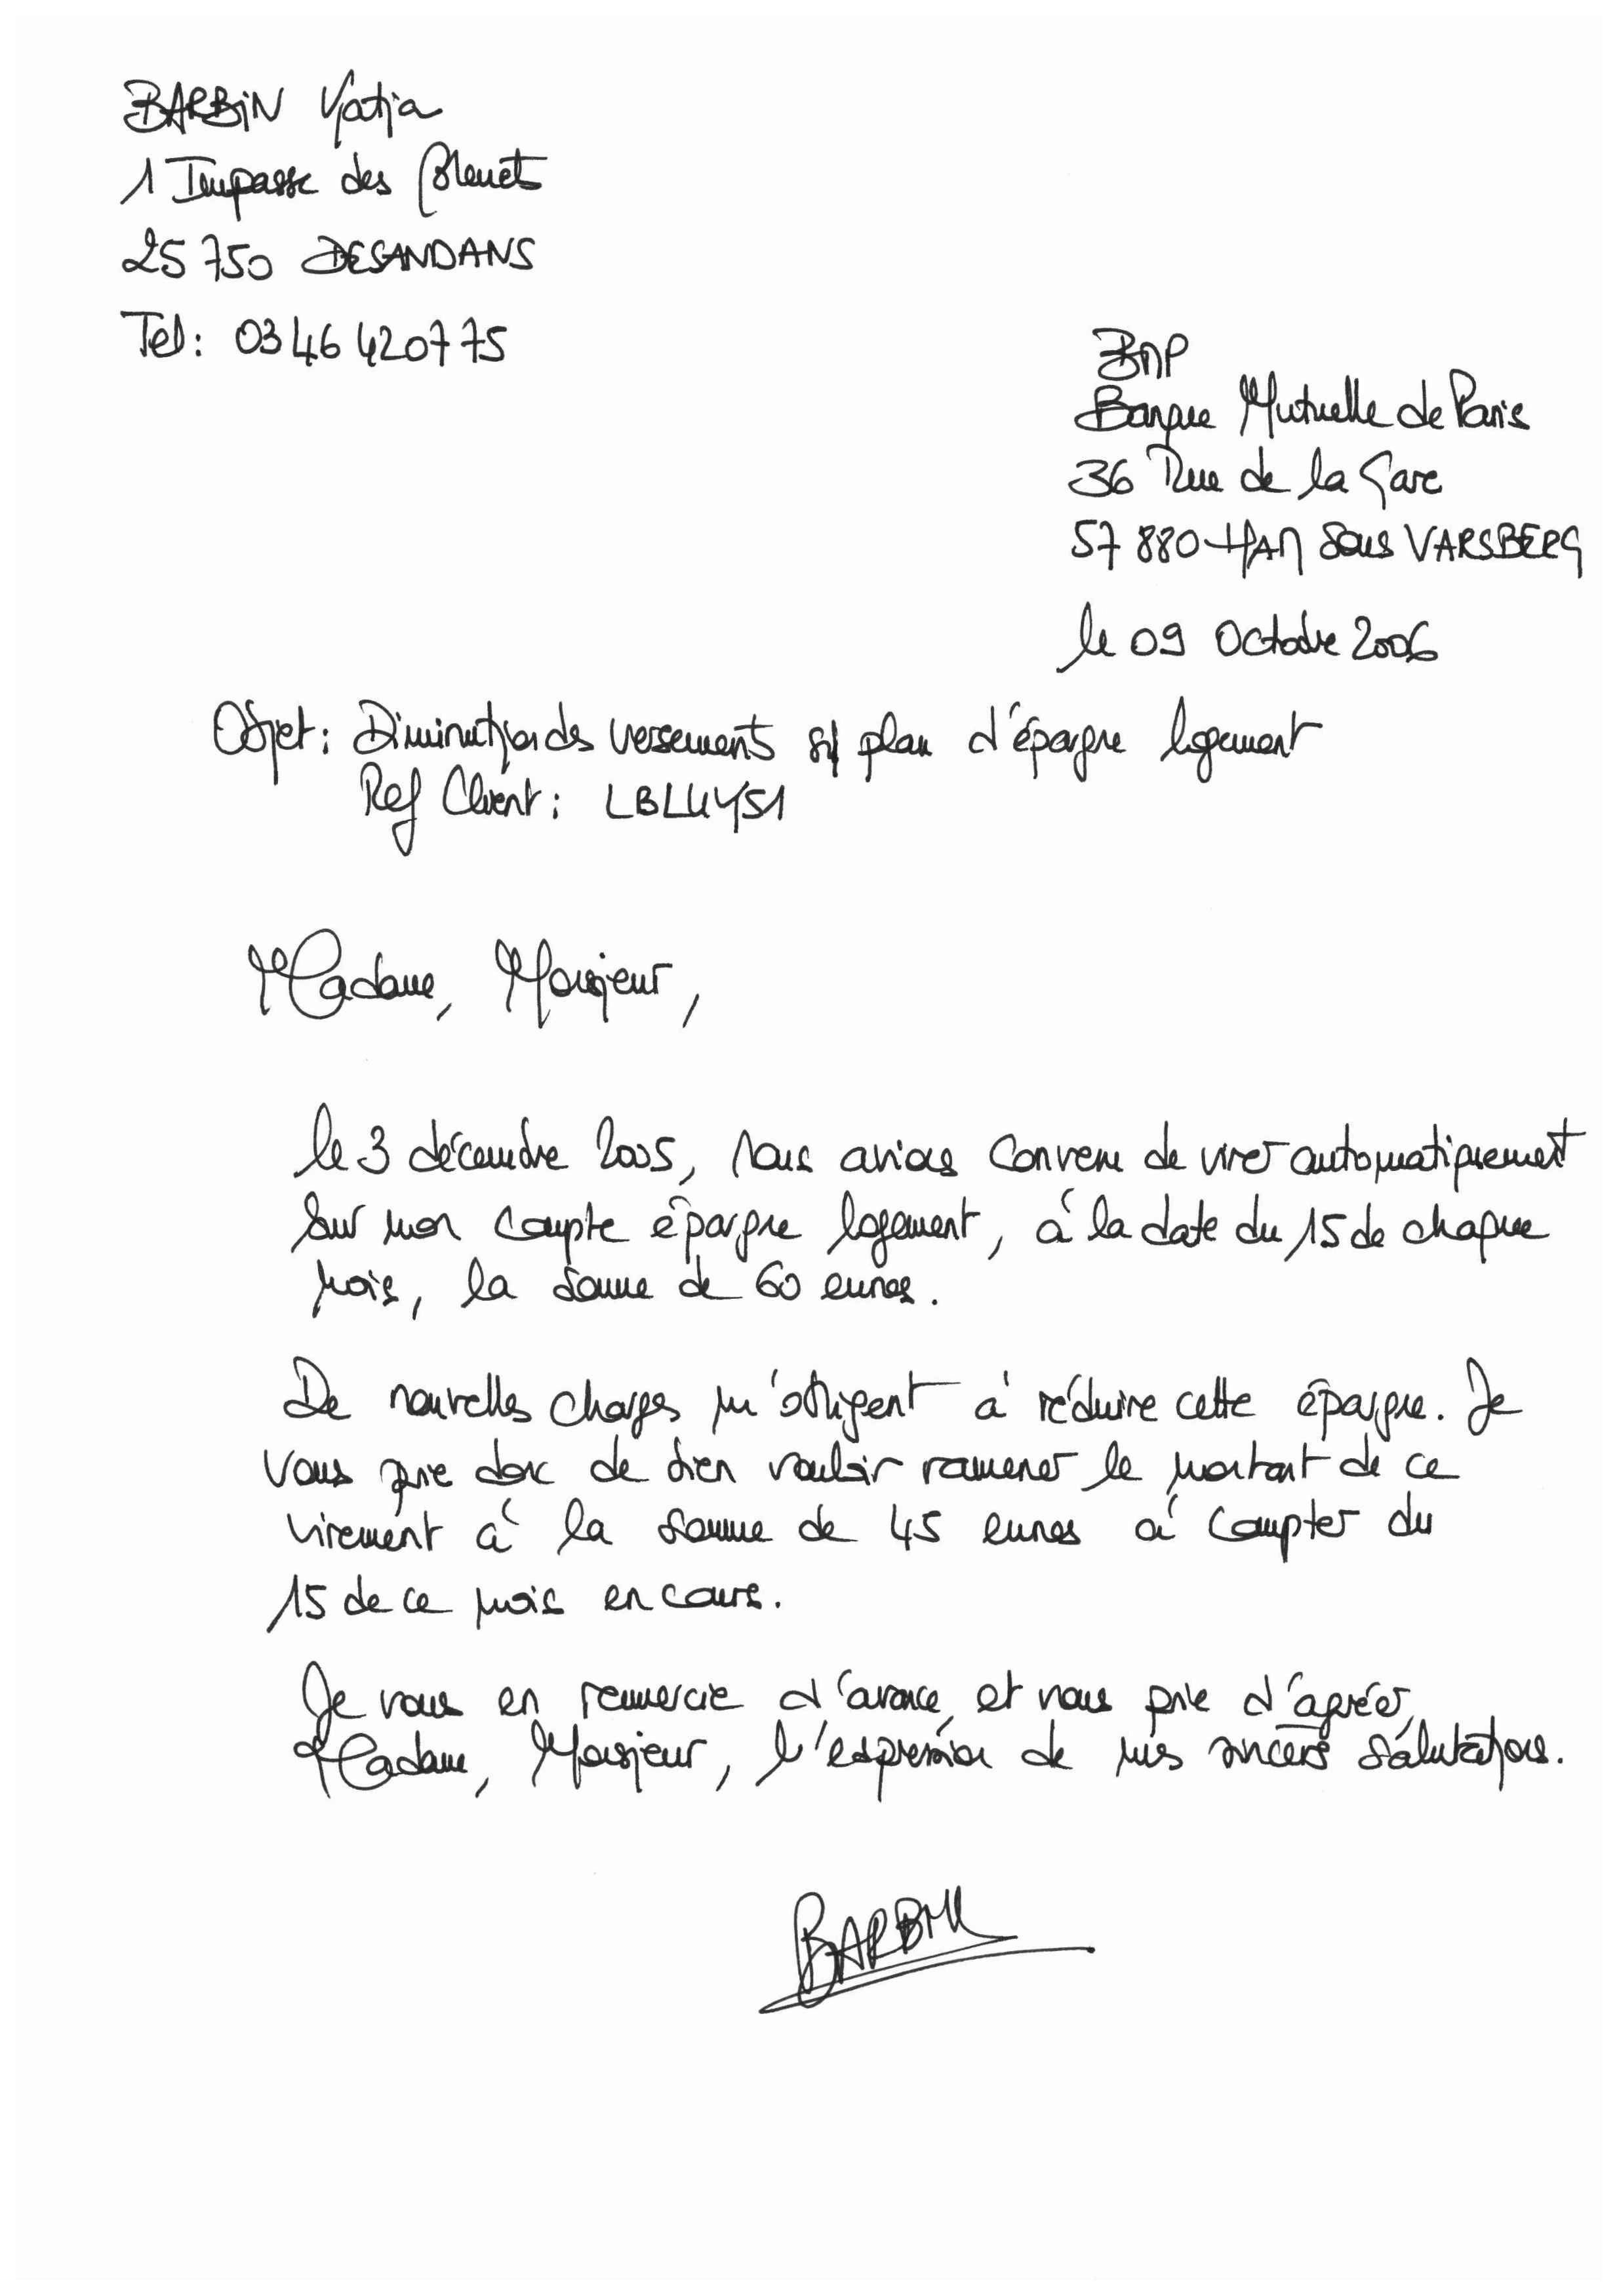 BARBIN Katia
1 Impasse des Bleuets
25 750 DESANDANS
Tel: 03 46 42 07 75
BMP
Banque Mutuelle de Paris
36 Rue de la Gare
57 880 HAM Sous VARSBERG
le 09 Octobre 2006
Objet: Diminution des versements s/ plan d'épargne logement
Ref Client: LBLUY51
Madame, Monsieur,
le 3 décembre 2005, Nous avions convenu de virer automatiquement
sur mon compte épargne logement, à la date du 15 de chaque
mois, la somme de 60 euros.
De nouvelles charges m'obligent à réduire cette épargne. Je
vous prie donc de bien vouloir ramener le montant de ce
virement à la somme de 45 euros à compter du
15 de ce mois en cours.
Je vous en remercie d'avance, et vous prie d'agréer,
Madame, Monsieur, l'expression de mes sincères salutations.
BARBIN